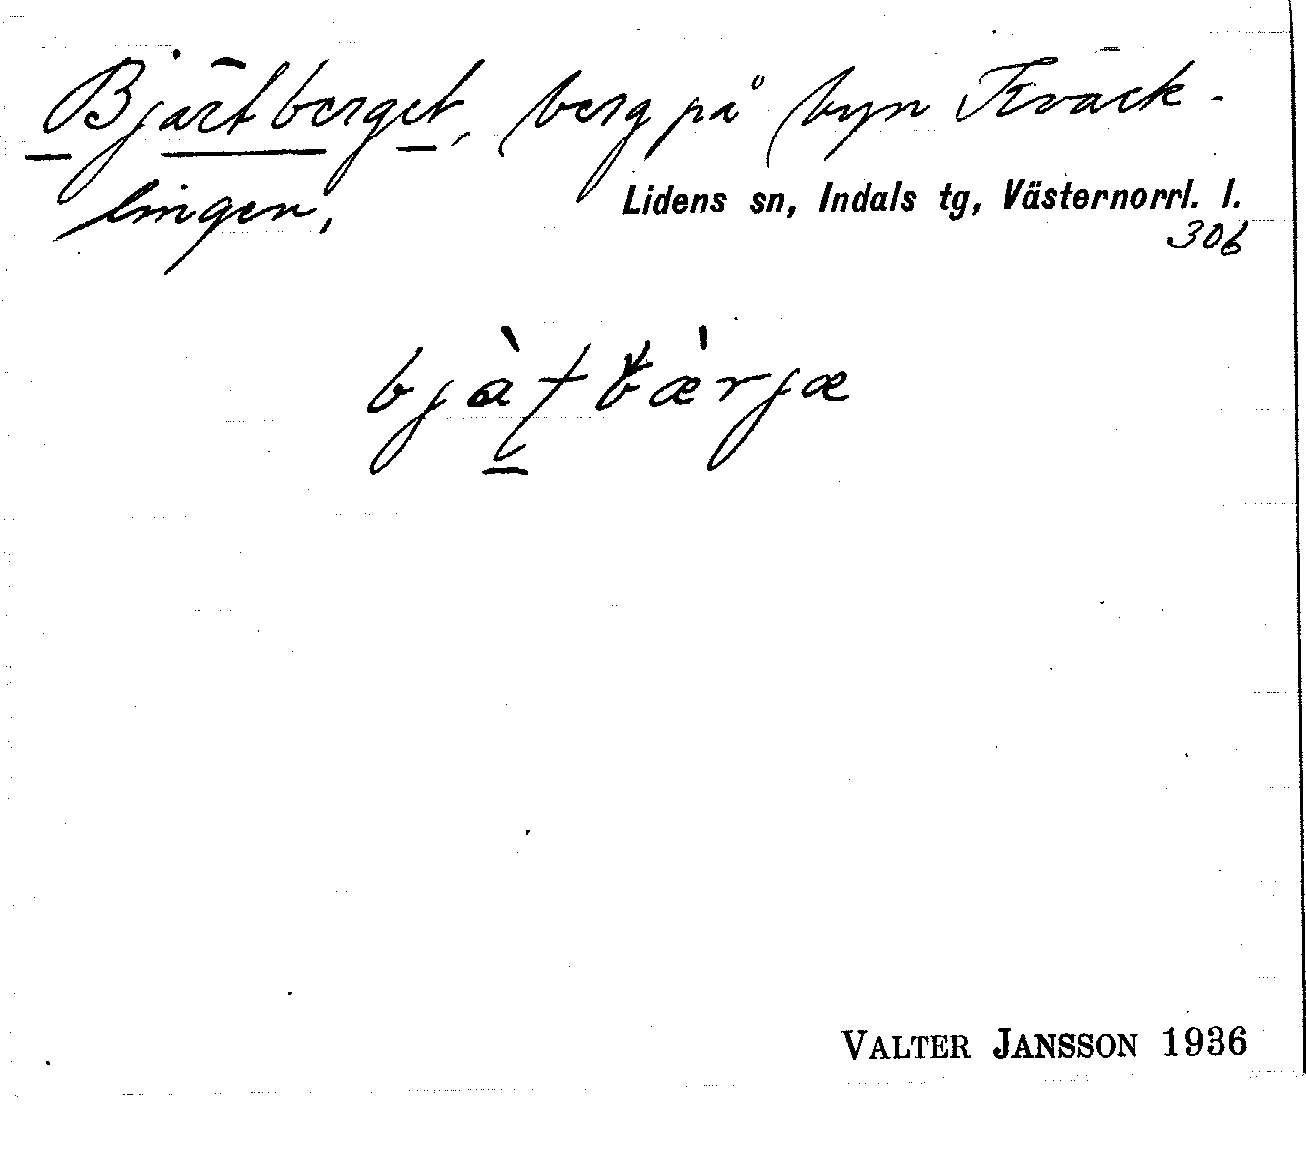 Bjärtberget, berg på byn Kväck-
lingen,
Lidens sn, Indals tg, Västernorrl. l.
306
bjàt bæ̀rjæ
VALTER JANSSON 1936